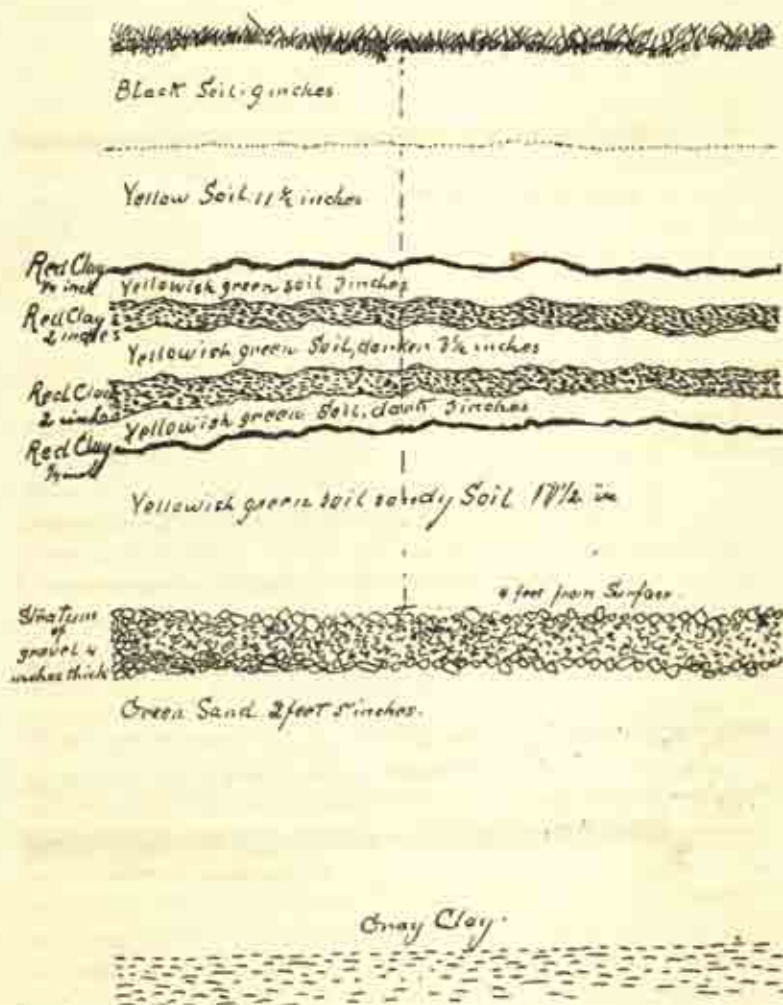 Black Soil. 9 inches
Yellow Soil. 11 ½ inches
Red Clay
inch
Yellowish green soil 3 inches
Red Clay
2 inches
Yellowish green Soil, darker 3½ inches
Red Clay
2 inches
Yellowish green Soil, dark 3 inches
Red Clay
Yellowish green soil sandy Soil 1 1/2 in
feet from Surface.
Stratum
of
gravel 4
inches thick
Green Sand. 2 feet 5 inches.
Gray Clay.